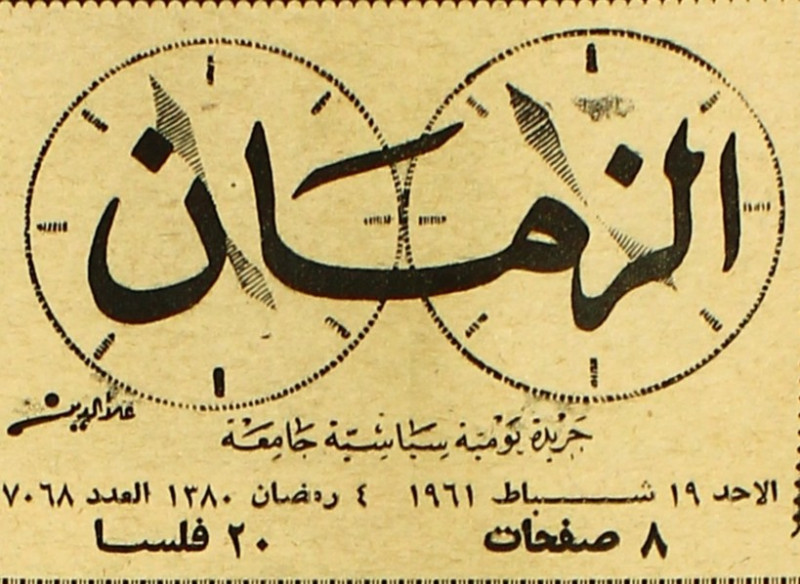 الزمان
علاء الدين
جَريدة يَوميَة سِيَاسْيَّة جَامِعَة
الاحد ١٩ شـــباط ١٩٦١ ٤ رمضان ١٣٨٠ العدد ٧٠٦٨
٨ صفحات ٢٠ فلسا